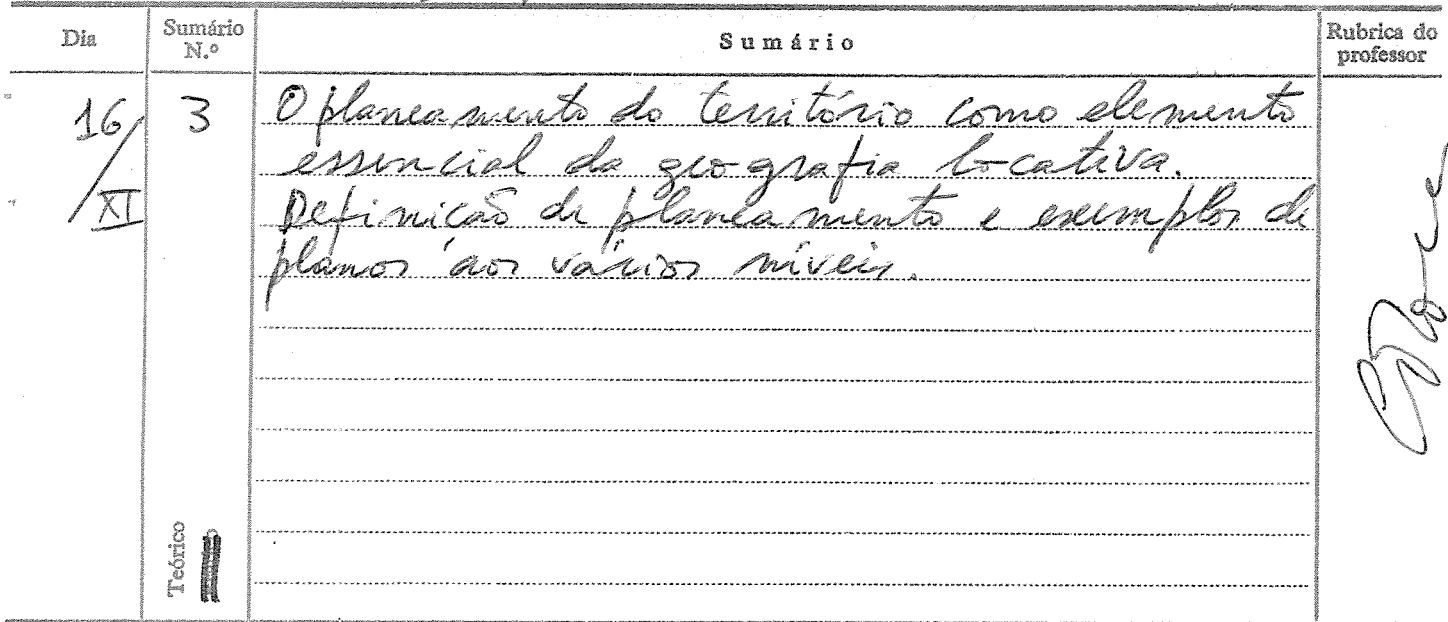 Dia
Sumário
N.º
Sumário
Rubrica do
professor
16/XI
3
O planeamento do território como elemento
essencial da geografia locativa.
Definição de planeamento e exemplos de
planos aos vários níveis.
Teórico